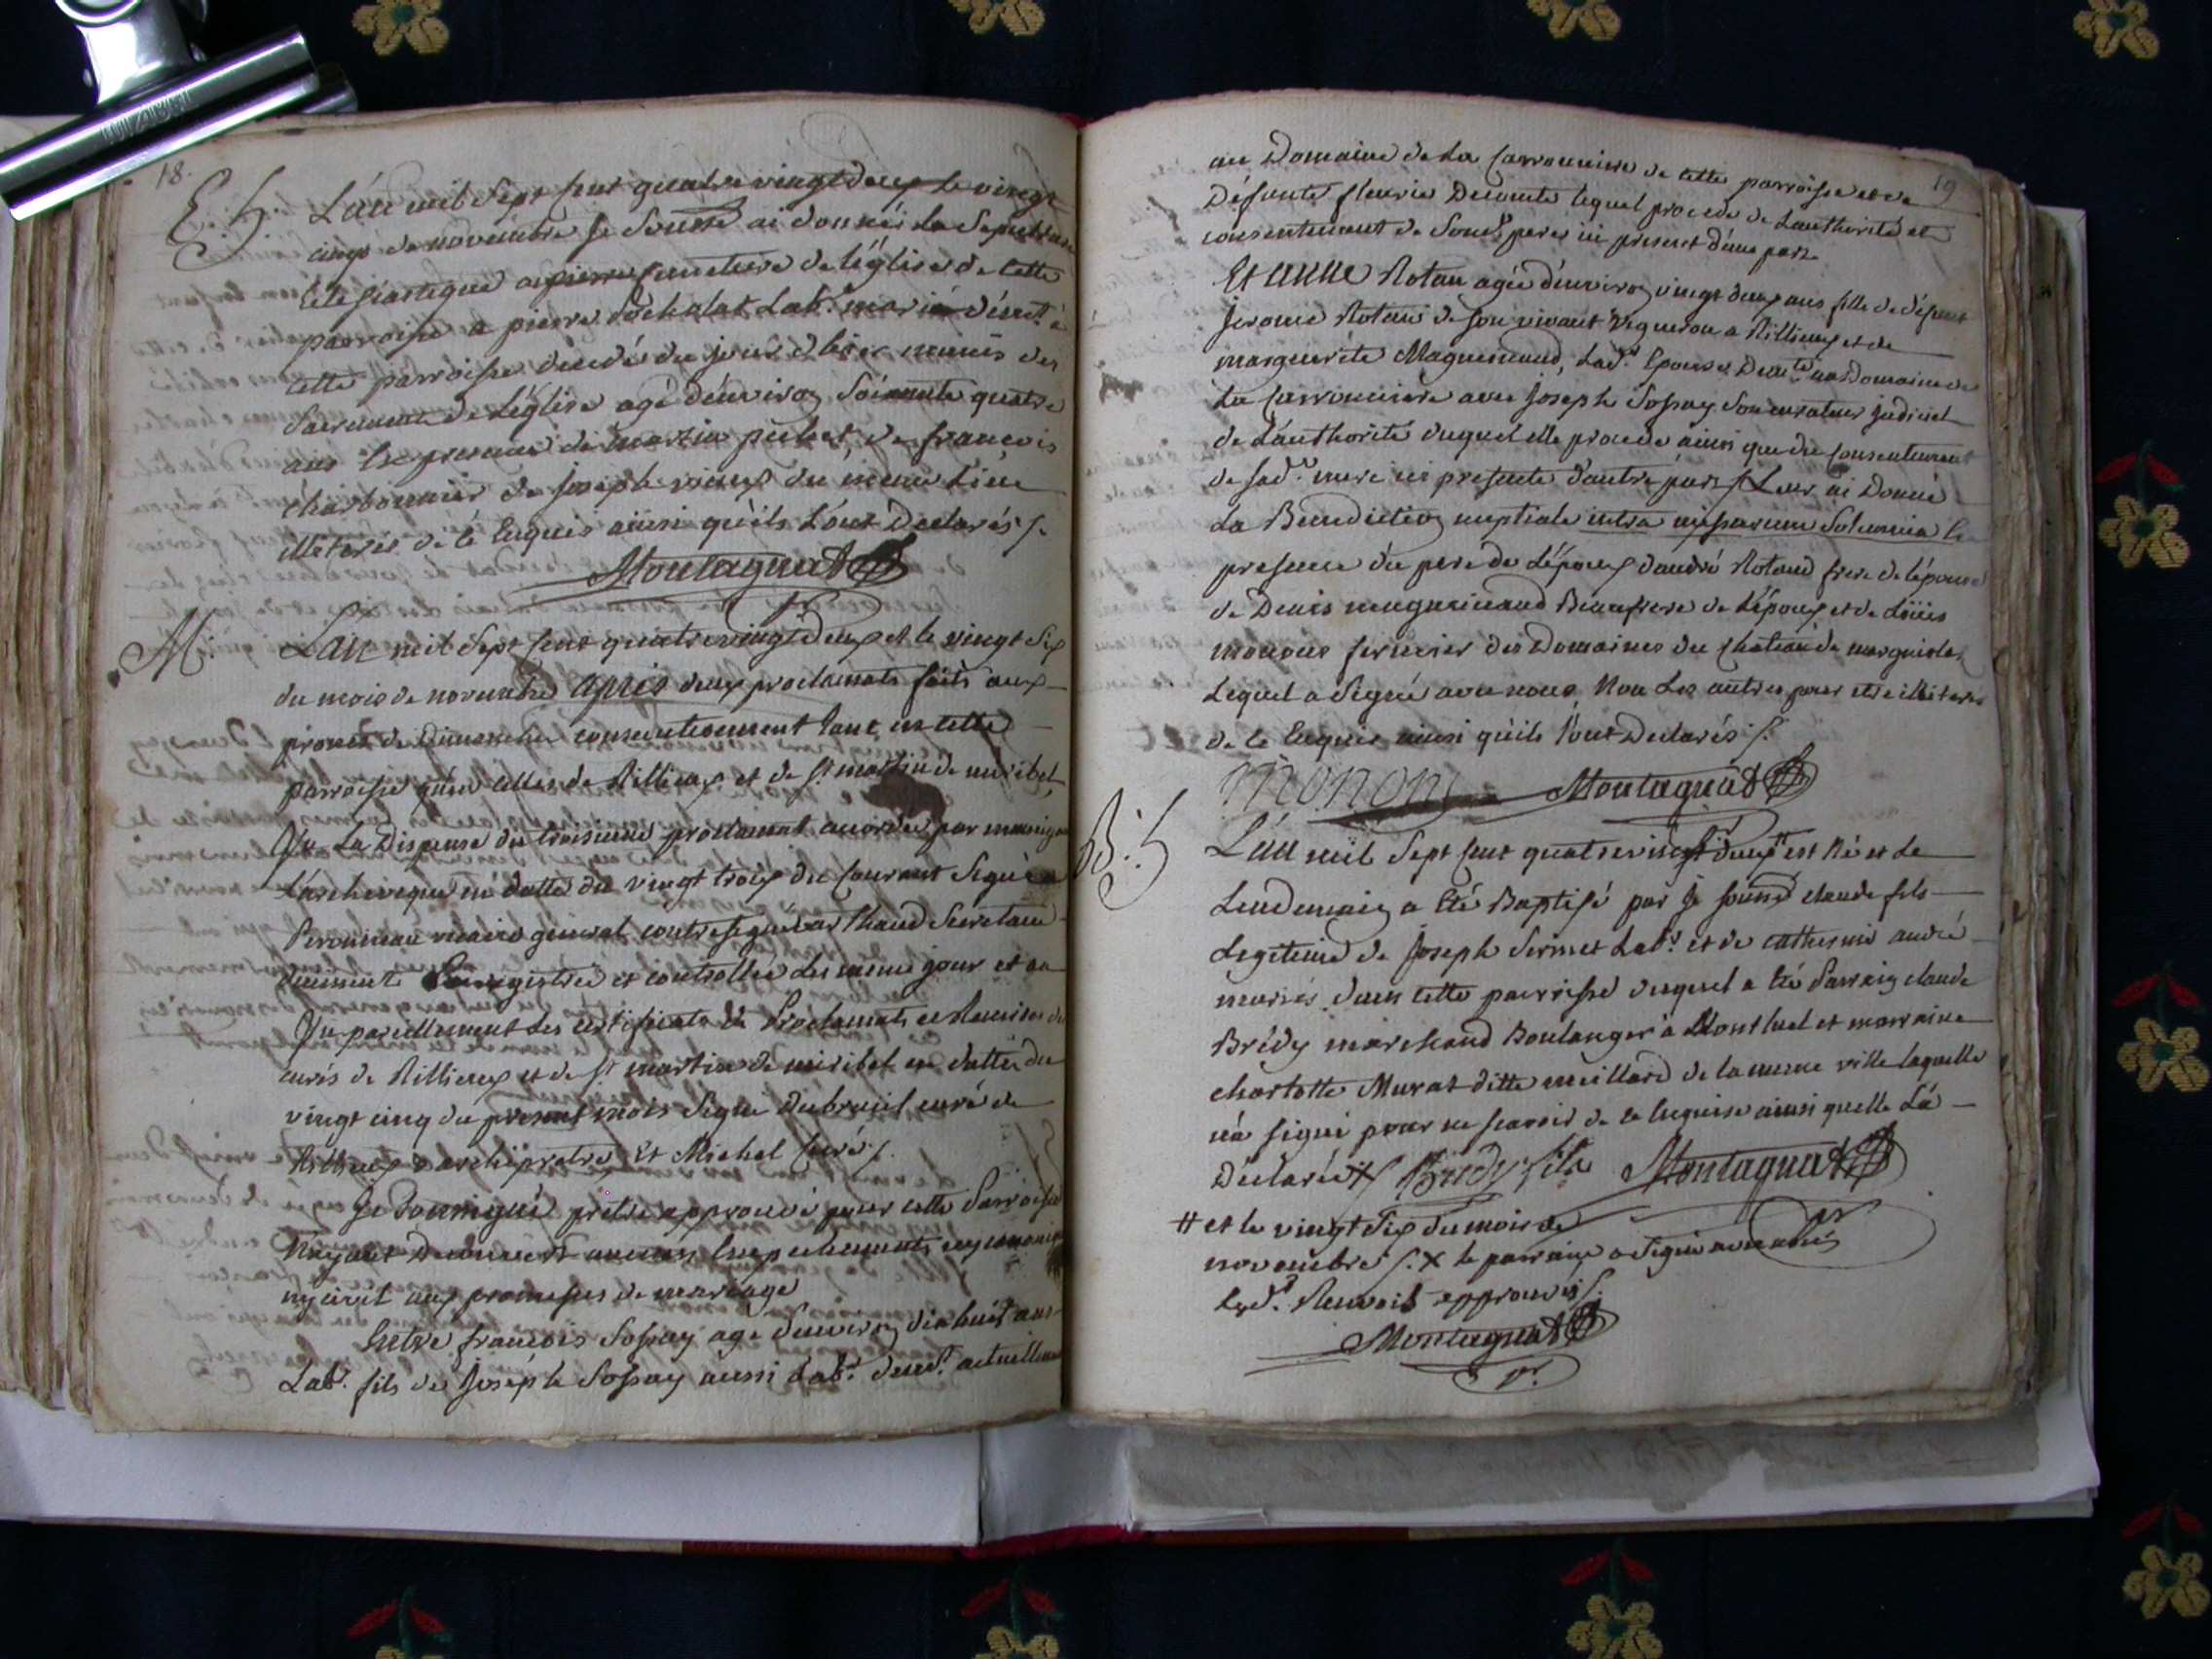 18.
E. S. L'an mil sept cent quatre vingt deux le vingt
cinq de novembre je soussé ai donnés la sepulture
parroisse a pierre Lab.r marié déurt. à
cette parroisse decedé du jour d'hier munis des
sacrements de l'église agé d'environ soixante quatre
ans en presence de martin pichet de francois
charbonnier de joseph vieux du même lieu
illeteres de ce enquis ainsi qu'ils l'ont declarés /.
Montagnat
M: L'an mil sept cent quatre vingt deux et le vingt six
du mois de novembre apres deux proclamats faits aux
prones de dimanches consecutivement tant en cette
parroisse qu'en celles de Rillieux et de St martin de miribel,
Vu la dispense du troisieme proclamat accordée par monseig
l'archeveque en datte du vingt trois du courant signée
vicaire general contresigné secretaire
duement Enregistrée et controllée les meme jour et an
Vu pareillement les certificats de Proclamats et Remises des
curés de Rillieux et de St martin de miribel en datte du
vingt cinq du present mois signe dubreuil curé de
Rillieux archiprétre Et Michel Curé /.
Je soussigné prétre approuvé pour cette Parroisse
N'ayant decouvert aucuns Empechements ny canonique
ny civil aux promesses de mariage
Entre francois Sossay agé d'environ dix huit ans
Lab.r fils de Joseph Sossay aussi Lab.r deurt. actuellement
19
au Domaine de La Carronniere de cette parroisse et de
Défunte fleurie Decomte lequel procede de l'authorité et
consentement de Sond. pere ici present d'une part
Et anne Rotan agée d'environ vingt deux ans fille de défunt
Jerome Rotan de son vivant vigneron a Rillieux et de
marguerite Maguenaud, Lad. Epouse Deurte. au Domaine de
La Carronniere avec Joseph Sossay Son curateur judiciel
de l'authorité duquel elle procede ainsi que du consentement
de sad. mere ici presente d'autre part / Leur ai Donné
La Benediction nuptiale intra missarum solemnia En
presence du pere de L'époux d'andré Rotand frere de l'épouse
de Denis Beaufrere de L'époux et de Loüis
monons fermier des Domaines du chateau de margnolas
Lequel a Signé avec nous Non Les autres pour etre illiteres
de ce Enquis ainsi qu'ils l'ont Declarés /.
monons Montagnat
B: S. L'an mil sept cent quatre vingt deux # est Né et le
Lendemain a été Baptisé par je soussé claude fils
Legitime de Joseph Sermet Lab.r et de catherine andré
mariés dans cette parroisse duquel a été Parrain claude
Brédy marchand Boulanger à Montluel et marraine
charlotte Murat ditte meillard de la meme ville laquelle
n'a signé pour ne scavoir de ce Enquise ainsi quelle L'a
Declarée X / Bredy fils Montagnat
# et le vingt six du mois de
novembre /. X le parrain a signé avec nous
Montagnat